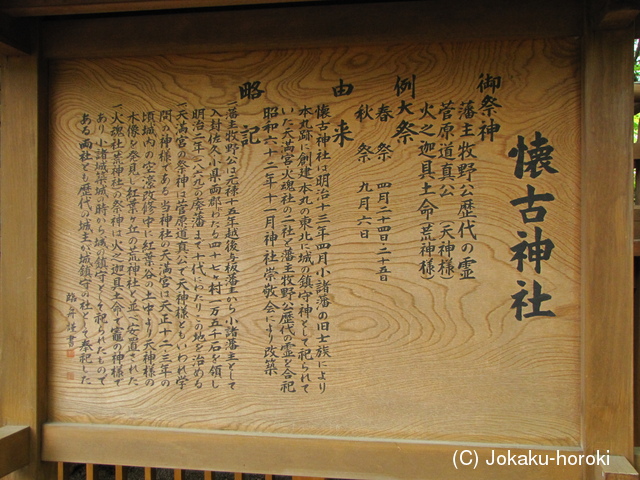 懐古神社
御祭神
藩主牧野公歴代の霊
菅原道真公（天神様）
火之迦具土命（荒神様）
例大祭
春祭 四月二十四日二十五日
秋祭 九月六日
由来
懐古神社は明治十三年四月小諸藩の旧士族により
本丸跡に創建本丸の東北に城の鎮守神として祀られて
いた天満宮火魂社の二社と藩主牧野公歴代の霊を合祀
昭和六十二年十一月神社崇敬会により改築
略記
一、藩主牧野公は元禄十五年越後与板藩主から小諸藩主として
入封佐久小県両郡にわたる四十七ヶ村一万五千石を領し
明治二年（一八六九）廃藩まで十代にわたりこの地を治める
一、天満宮の祭神は菅原道真公で天神様ともいわれ学
問の神様である当神社の天満宮は大正十二・三年の
頃城内の空濠改修中に紅葉谷の土中より天神様の
木像を発見紅葉ヶ丘の荒神社と並べ安置された
一、火魂社（荒神社）の祭神は火之迦具土命で竈の神様で
あり小諸城築城の時から城の鎮守として祀られたもので
ある両社とも歴代の城主が城鎮守の社として奉祀した
謹書
(C) Jokaku-horoki